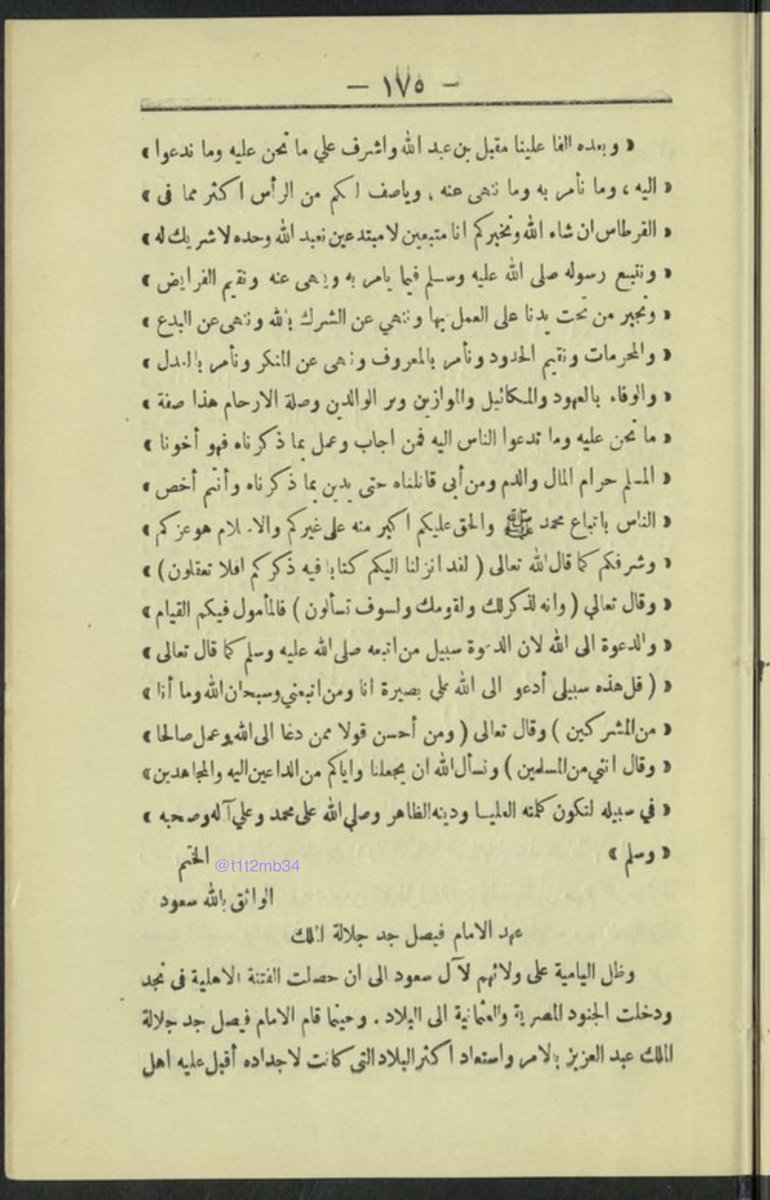 — ١٧٥ —
« وبعده الفا علينا مقبل بن عبد الله واشرف علي ما نحن عليه وما ندعوا »
« اليه ، وما نأمر به وما ننهى عنه ، وياصف لكم من الرأس اكثر مما فى »
« القرطاس ان شاء الله ونخبركم انا متبعين لا مبتدعين نعبد الله وحده لا شريك له »
« ونتبع رسوله صلى الله عليه وسلم فيما يامر به وينهى عنه ونقيم الفرايض »
« ونجبر من تحت يدنا على العمل بها وننهي عن الشرك بالله وننهى عن البدع »
« والمحرمات ونقيم الحدود ونأمر بالمعروف وننهى عن المنكر ونأمر بالعدل »
« والوفاء بالعهود والمكائيل والموازين وبر الوالدين وصلة الارحام هذا صفة »
« ما نحن عليه وما تدعوا الناس اليه فمن اجاب وعمل بما ذكرناه فهو أخونا »
« المسلم حرام المال والدم ومن أبى قاتلناه حتى يدين بما ذكرناه وأنتم أخص »
« الناس باتباع محمد ﷺ والحق عليكم اكبر منه على غيركم والاسلام هو عزكم »
« وشرفكم كما قال الله تعالى ( لقد انزلنا اليكم كتابا فيه ذكركم افلا تعقلون ) »
« وقال تعالي ( وانه لذكر لك ولقومك ولسوف تسألون ) فالمأمول فيكم القيام »
« والدعوة الى الله لان الدعوة سبيل من اتبعه صلى الله عليه وسلم كما قال تعالى »
« ( قل هذه سبيلى أدعو الى الله على بصيرة انا ومن اتبعني وسبحان الله وما أنا »
« من المشركين ) وقال تعالى ( ومن أحسن قولا ممن دعا الى الله وعمل صالحا »
« وقال انني من المسلمين ) ونسأل الله ان يجعلنا واياكم من الداعين اليه والمجاهدين »
« في سبيله لتكون كلمته العليا ودينه الظاهر وصلي الله على محمد وعلي آله وصحبه »
« وسلم » الختم
@t1t2mb34
الواثق بالله سعود
عهد الامام فيصل جد جلالة الملك
وظل اليامية على ولائهم لآل سعود الى ان حصلت الفتنة الاهلية فى نجد
ودخلت الجنود المصرية والعثمانية الى البلاد . وحينما قام الامام فيصل جد جلالة
الملك عبد العزيز بالامر واستعاد اكثر البلاد التى كانت لاجداده أقبل عليه اهل